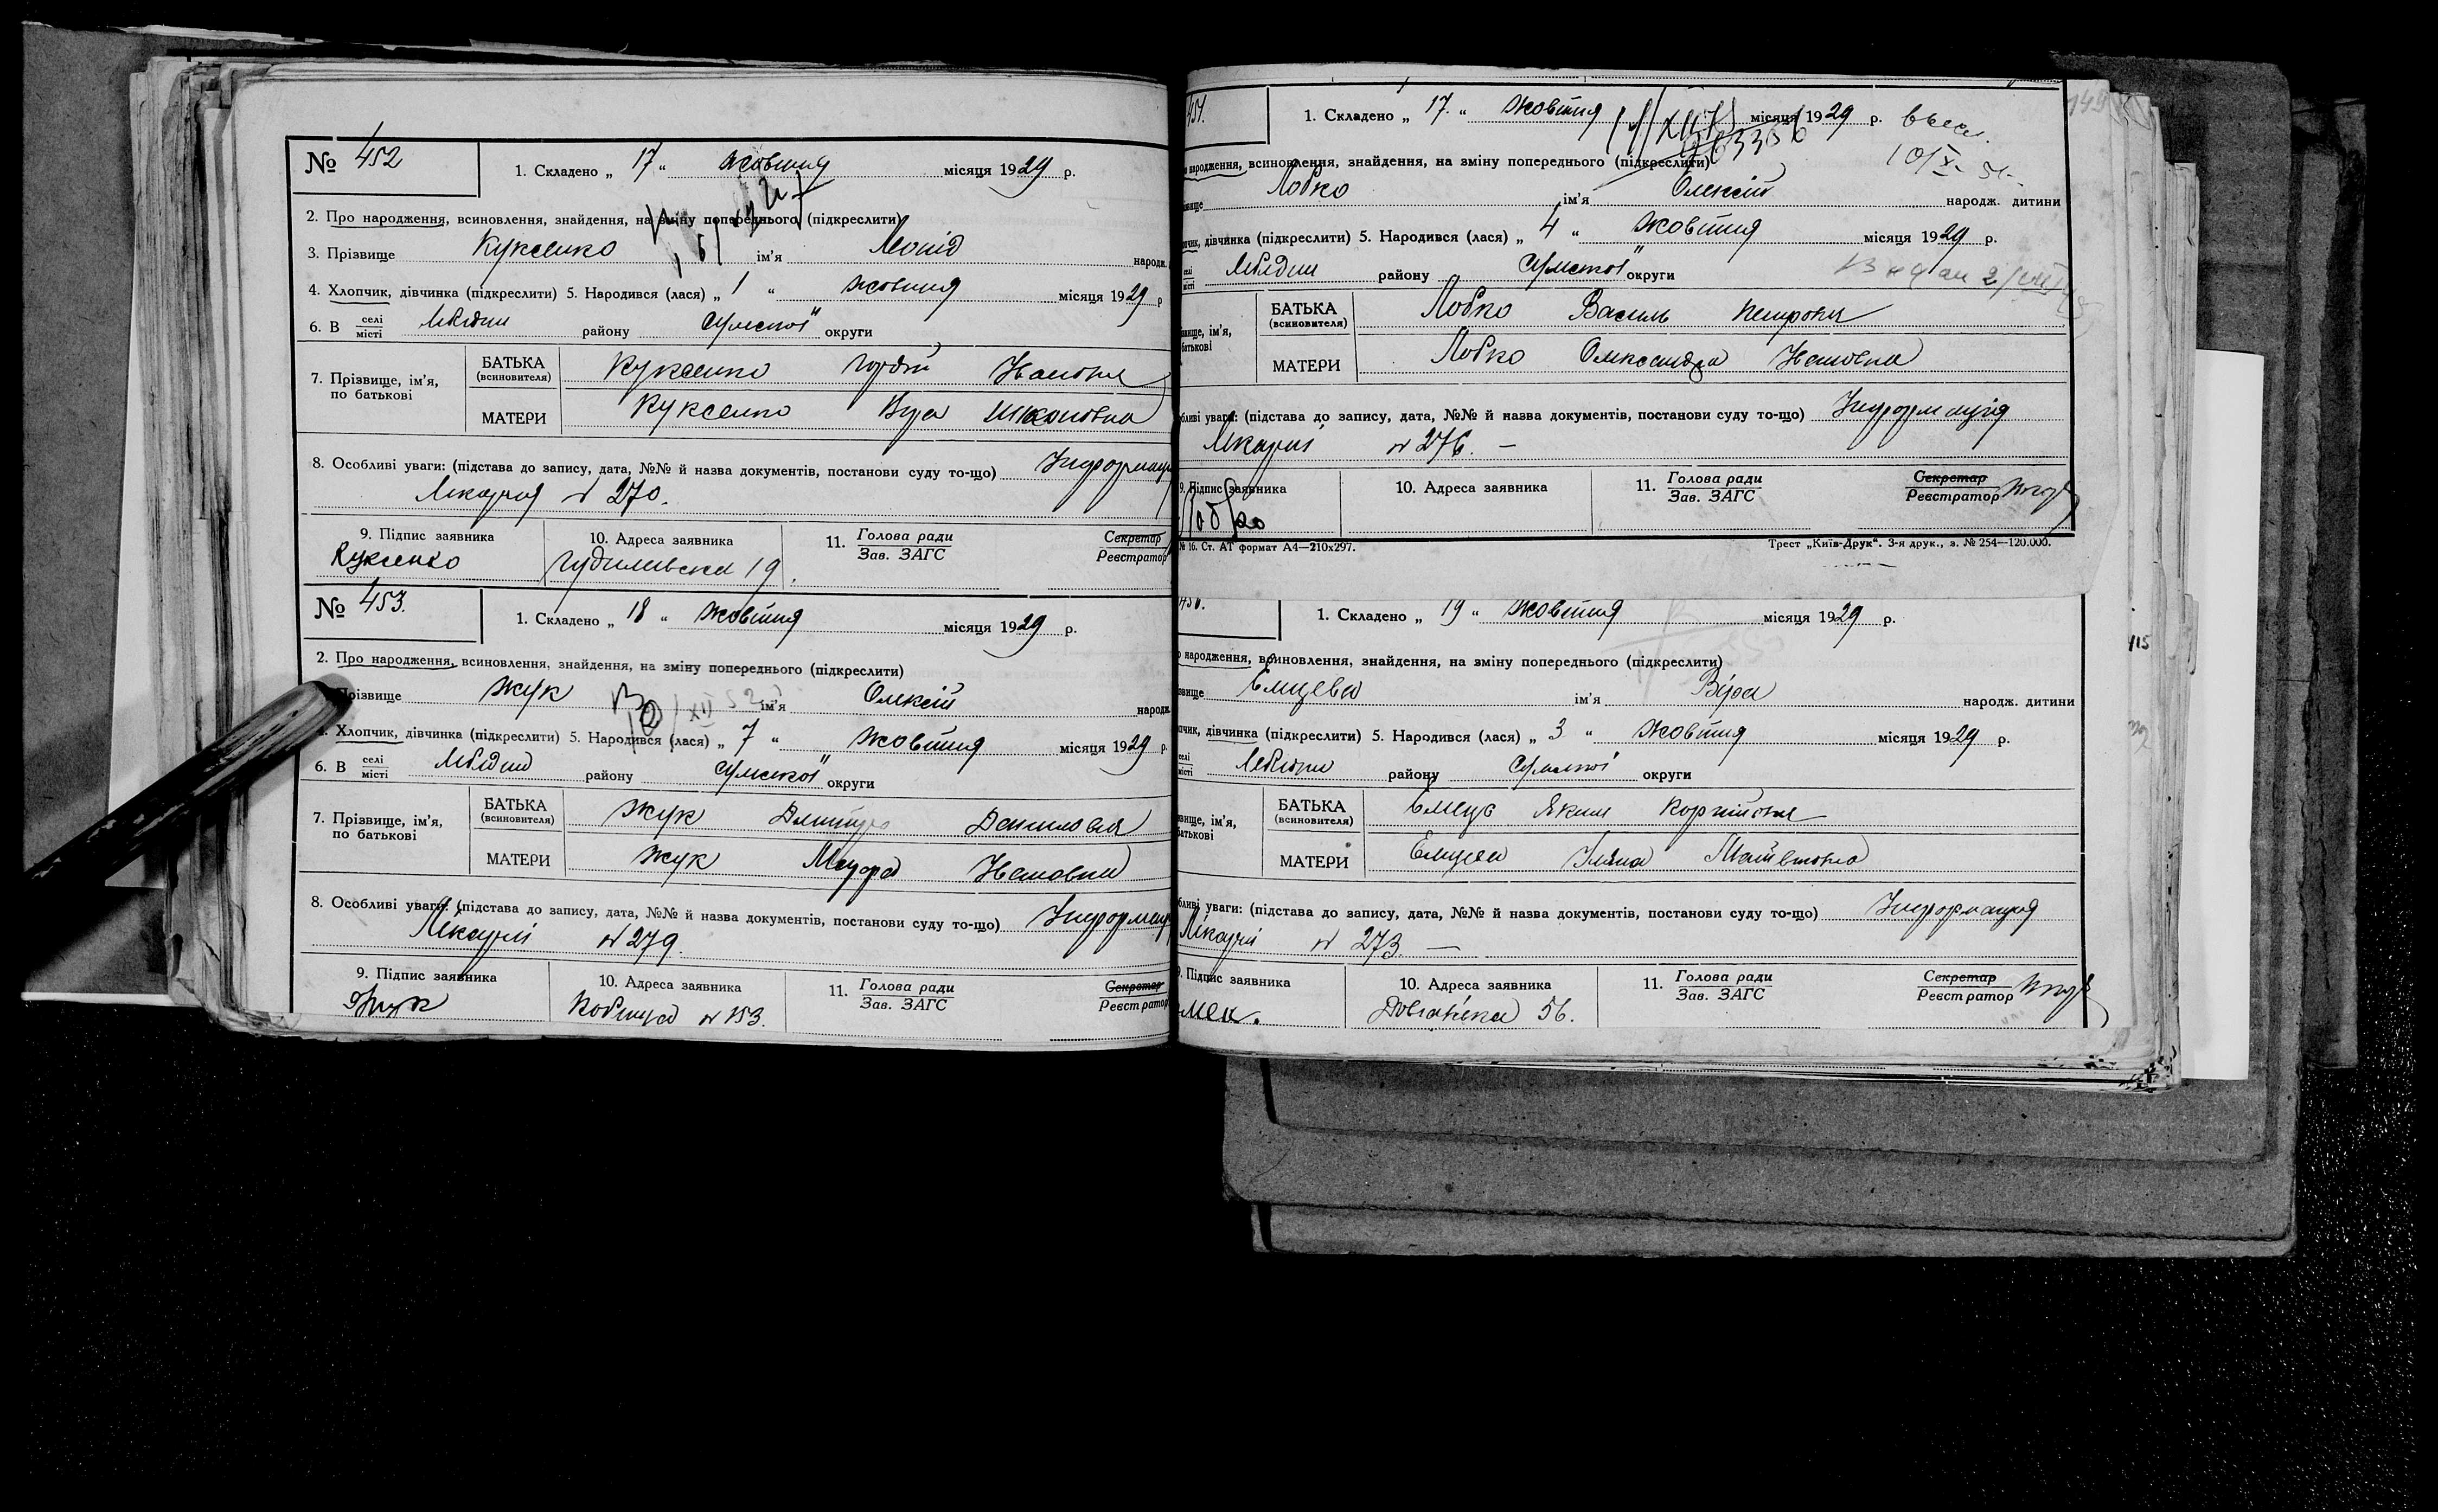 № 452
1. Складено „ 17 “ жовтня місяця 1929 р.
2. Про народження, всиновлення, знайдення, на зміну попереднього (підкреслити)
3. Прізвище Куксенко ім’я Леонід народж.
4. Хлопчик, дівчинка (підкреслити) 5. Народився (лася) „ 1 “ жовтня місяця 1929 р
6. В селі місті Лебедин району Сумської округи
7. Прізвище, ім’я, по батькові
БАТЬКА (всиновителя) Куксенко Гордій Іванович
МАТЕРИ Куксенко Віра
8. Особливі уваги: (підстава до запису, дата, №№ й назва документів, постанови суду то-що) Інформація
Лікарня № 270.
9. Підпис заявника 10. Адреса заявника 11. Голова ради Зав. ЗАГС Секретар Реєстратор
Куксенко 19
№ 453.
1. Складено „ 18 “ жовтня місяця 1929 р.
2. Про народження, всиновлення, знайдення, на зміну попереднього (підкреслити)
Прізвище Жук ім’я Олексій народж.
Хлопчик, дівчинка (підкреслити) 5. Народився (лася) „ 7 “ жовтня місяця 1929 р.
6. В селі місті Лебедин району Сумської округи
7. Прізвище, ім’я, по батькові
БАТЬКА (всиновителя) Жук Дмитро Данилович
МАТЕРИ Жук Мотря Івановна
8. Особливі уваги: (підстава до запису, дата, №№ й назва документів, постанови суду то-що) Інформація
Лікарні № 279.
9. Підпис заявника 10. Адреса заявника 11. Голова ради Зав. ЗАГС Секретар Реєстратор
Жук Кобища № 153.
1. Складено „ 17. “ жовтня місяця 1929 р.
народження, всиновлення, знайдення, на зміну попереднього (підкреслити)
Лобко ім’я Олексій народж. дитини
дівчинка (підкреслити) 5. Народився (лася) „ 4 “ жовтня місяця 1929 р.
селі місті Лебедин району Сумської округи
БАТЬКА (всиновителя) Лобко Василь Петрович
МАТЕРИ Лобко Олександра Івановна
уваги: (підстава до запису, дата, №№ й назва документів, постанови суду то-що) Інформація
Лікарні № 276. —
9. Підпис заявника 10. Адреса заявника 11. Голова ради Зав. ЗАГС Секретар Реєстратор
Лобко
№ 16. Ст. АТ формат А4—210х297. Трест „Київ-Друк“. 3-я друк., з. № 254—120.000.
1. Складено „ 19 “ жовтня місяця 1929 р.
народження, всиновлення, знайдення, на зміну попереднього (підкреслити)
Ємцева ім’я Віра народж. дитини
дівчинка (підкреслити) 5. Народився (лася) „ 3 “ жовтня місяця 1929 р.
селі місті Лебедин району Сумської округи
БАТЬКА (всиновителя) Ємець Яким Корнійович
МАТЕРИ Ємцева Уляна Матвіївна
уваги: (підстава до запису, дата, №№ й назва документів, постанови суду то-що) Інформація
Лікарні № 273. —
9. Підпис заявника 10. Адреса заявника 11. Голова ради Зав. ЗАГС Секретар Реєстратор
56.